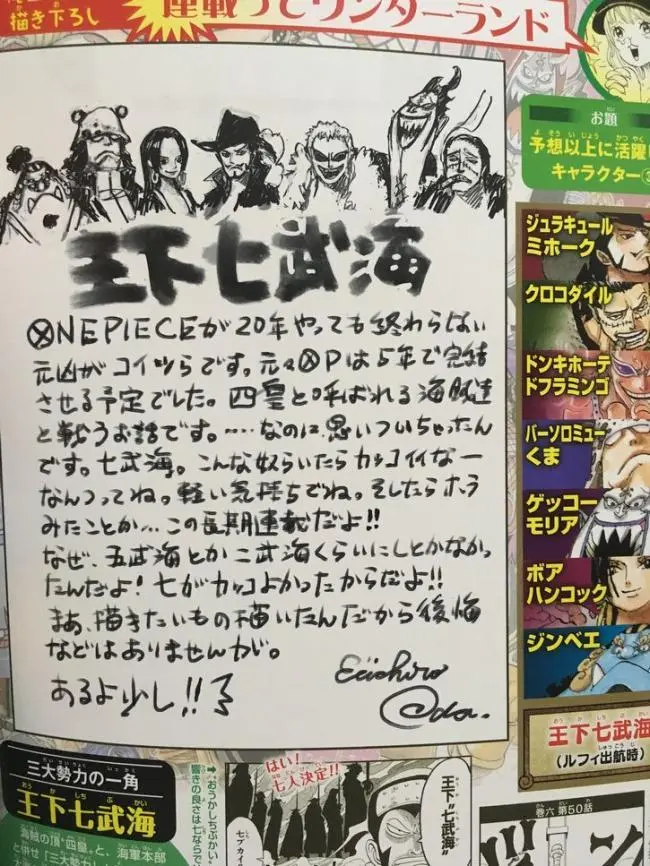 描き下ろし
連載つてワンダーランド
お題
予想以上に活躍し
キャラクター③
王下七武海
ONEPIECEが20年やっても終わらない
元凶がコイツらです。元々OPは5年で完結
させる予定でした。四皇と呼ばれる海賊達
と戦うお話です。……なのに思いついちゃったん
です。七武海。こんな奴らいたらカッコイイなー
なんつってね。軽い気持ちでね。そしたらホラ
みたことか…この長期連載だよ!!
なぜ、五武海とか二武海くらいにしとかなかっ
たんだよ!七がカッコよかったからだよ!!
まあ、描きたいもの描いたんだから後悔
などはありませんが。
あるよ少し!!
Eiichiro
Oda.
ジュラキュール
ミホーク
クロコダイル
ドンキホーテ
ドフラミンゴ
バーソロミュー
くま
ゲッコー
モリア
ボア
ハンコック
ジンベエ
王下七武海
(ルフィ出航時)
三大勢力の一角
王下七武海
海賊の頂“四皇”と、海軍本部
と併せ「三大勢力
➡おうかしちぶかい
響きの良さは七ならで
はい!
七人決定!!
王下“七武海”
七ブカイ
巻六 第50話